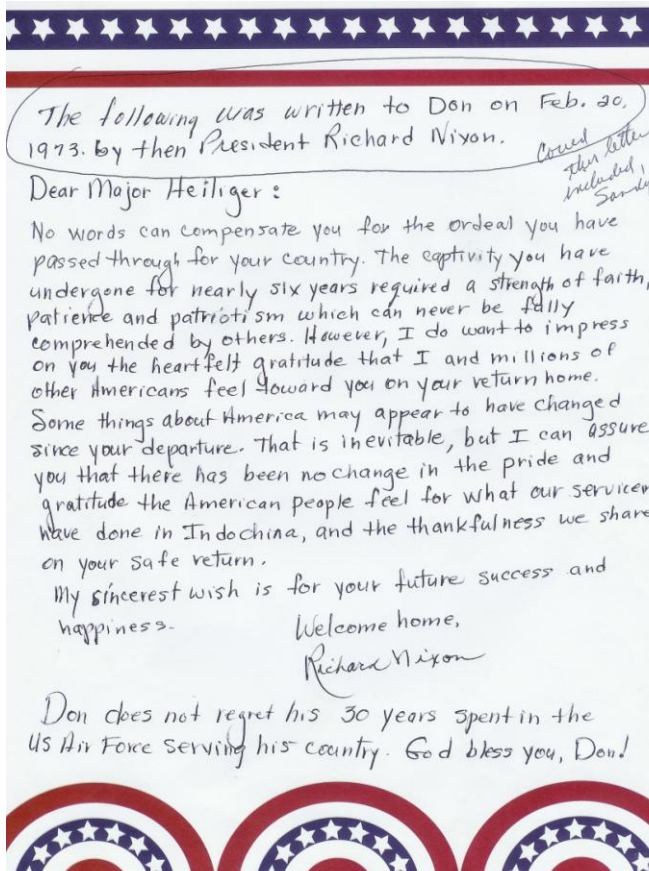 The following was written to Don on Feb. 20,
1973. by then President Richard Nixon.
Could
this letter
included,
Sandy
Dear Major Heiliger:
No words can compensate you for the ordeal you have
passed through for your country. The captivity you have
undergone for nearly six years required a strength of faith,
patience and patriotism which can never be fully
comprehended by others. However, I do want to impress
on you the heartfelt gratitude that I and millions of
other Americans feel toward you on your return home.
Some things about America may appear to have changed
since your departure. That is inevitable, but I can assure
you that there has been no change in the pride and
gratitude the American people feel for what our servicem
have done in Indochina, and the thankfulness we share
on your safe return.
My sincerest wish is for your future success and
happiness.
Welcome home,
Richard Nixon
Don does not regret his 30 years spent in the
US Air Force serving his country. God bless you, Don!